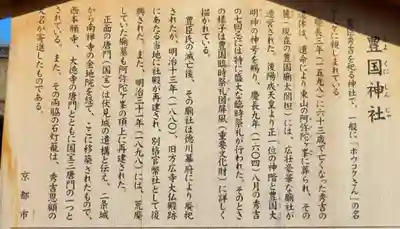 豊国神社
とよくにじんじゃ
豊臣秀吉を祀る神社で、一般に「ホウコクさん」の名
で親しまれている。
慶長三年(一五九八)に六十三歳で亡くなった秀吉の
遺体は、遺命により東山の阿弥陀ヶ峯に葬られ、その
麓(現在の豊国廟太閤坦)には、広壮豪華な廟社が
造営された。後陽成天皇より正一位の神階と豊国大
明神の神号を賜り、慶長九年(一六〇四)八月の秀吉
の七回忌には特に盛大な臨時祭礼が行われた。そのとき
の様子は豊国臨時祭礼図屏風(重要文化財)に詳しく
描かれている。
豊臣氏の滅亡後、その廟社は徳川幕府により廃祀
されたが、明治十三年(一八八〇)、旧方広寺大仏殿跡
にあたる当地に社殿が再建され、別格官幣社として復
興された。また、明治三十年(一八九八)には、荒廃
していた廟墓も阿弥陀ヶ峯の頂上に再建された。
正面の唐門(国宝)は伏見城の遺構と伝え、二条城
から南禅寺の金地院を経て、ここに移築されたもので、
西本願寺、大徳寺の唐門とともに国宝三唐門の一つと
されている。また、その両脇の石灯籠は、秀吉恩顧の
大名が寄進したものである。
京都市